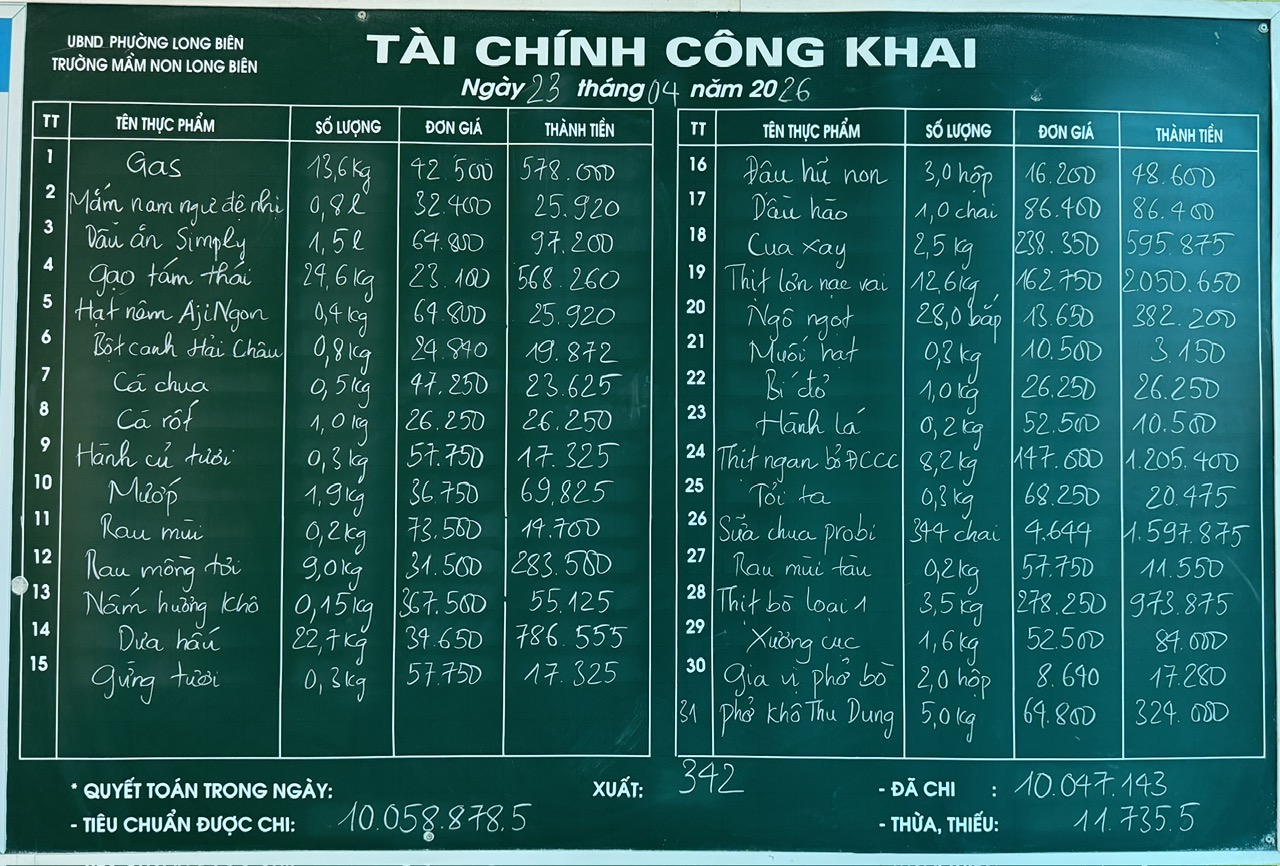 UBND PHƯỜNG LONG BIÊN
TRƯỜNG MẦM NON LONG BIÊN
TÀI CHÍNH CÔNG KHAI
Ngày 23 tháng 04 năm 2026
TT TÊN THỰC PHẨM SỐ LƯỢNG ĐƠN GIÁ THÀNH TIỀN
1 Gas 13,6kg 42.500 578.000
2 Mắm nam ngư đệ nhị 0,8l 32.400 25.920
3 Dầu ăn Simply 1,5l 64.800 97.200
4 Gạo tám thái 24,6kg 23.100 568.260
5 Hạt nêm AjiNgon 0,4kg 64.800 25.920
6 Bột canh Hải Châu 0,8kg 24.840 19.872
7 Cà chua 0,5kg 47.250 23.625
8 Cà rốt 1,0kg 26.250 26.250
9 Hành củ tươi 0,3kg 57.750 17.325
10 Mướp 1,9kg 36.750 69.825
11 Rau mùi 0,2kg 73.500 14.700
12 Rau mồng tơi 9,0kg 31.500 283.500
13 Nấm hương khô 0,15kg 367.500 55.125
14 Dưa hấu 22,7kg 34.650 786.555
15 Gừng tươi 0,3kg 57.750 17.325
TT TÊN THỰC PHẨM SỐ LƯỢNG ĐƠN GIÁ THÀNH TIỀN
16 Đậu hũ non 3,0 hộp 16.200 48.600
17 Dầu hào 1,0 chai 86.400 86.400
18 Cua xay 2,5kg 238.350 595.875
19 Thịt lợn nạc vai 12,6kg 162.750 2050.650
20 Ngô ngọt 28,0 bắp 13.650 382.200
21 Muối hạt 0,3kg 10.500 3.150
22 Bí đỏ 1,0kg 26.250 26.250
23 Hành lá 0,2kg 52.500 10.500
24 Thịt ngan bỏ ĐCCC 8,2kg 147.000 1.205.400
25 Tỏi ta 0,3kg 68.250 20.475
26 Sữa chua probi 344 chai 4.644 1.597.875
27 Rau mùi tàu 0,2kg 57.750 11.550
28 Thịt bò loại 1 3,5kg 278.250 973.875
29 Xương cục 1,6kg 52.500 84.000
30 Gia vị phở bò 2,0 hộp 8.640 17.280
31 phở khô Thu Dung 5,0kg 64.800 324.000
* QUYẾT TOÁN TRONG NGÀY: XUẤT: 342 - ĐÃ CHI : 10.047.143
- TIÊU CHUẨN ĐƯỢC CHI: 10.058.878,5 - THỪA, THIẾU: 11.735.5